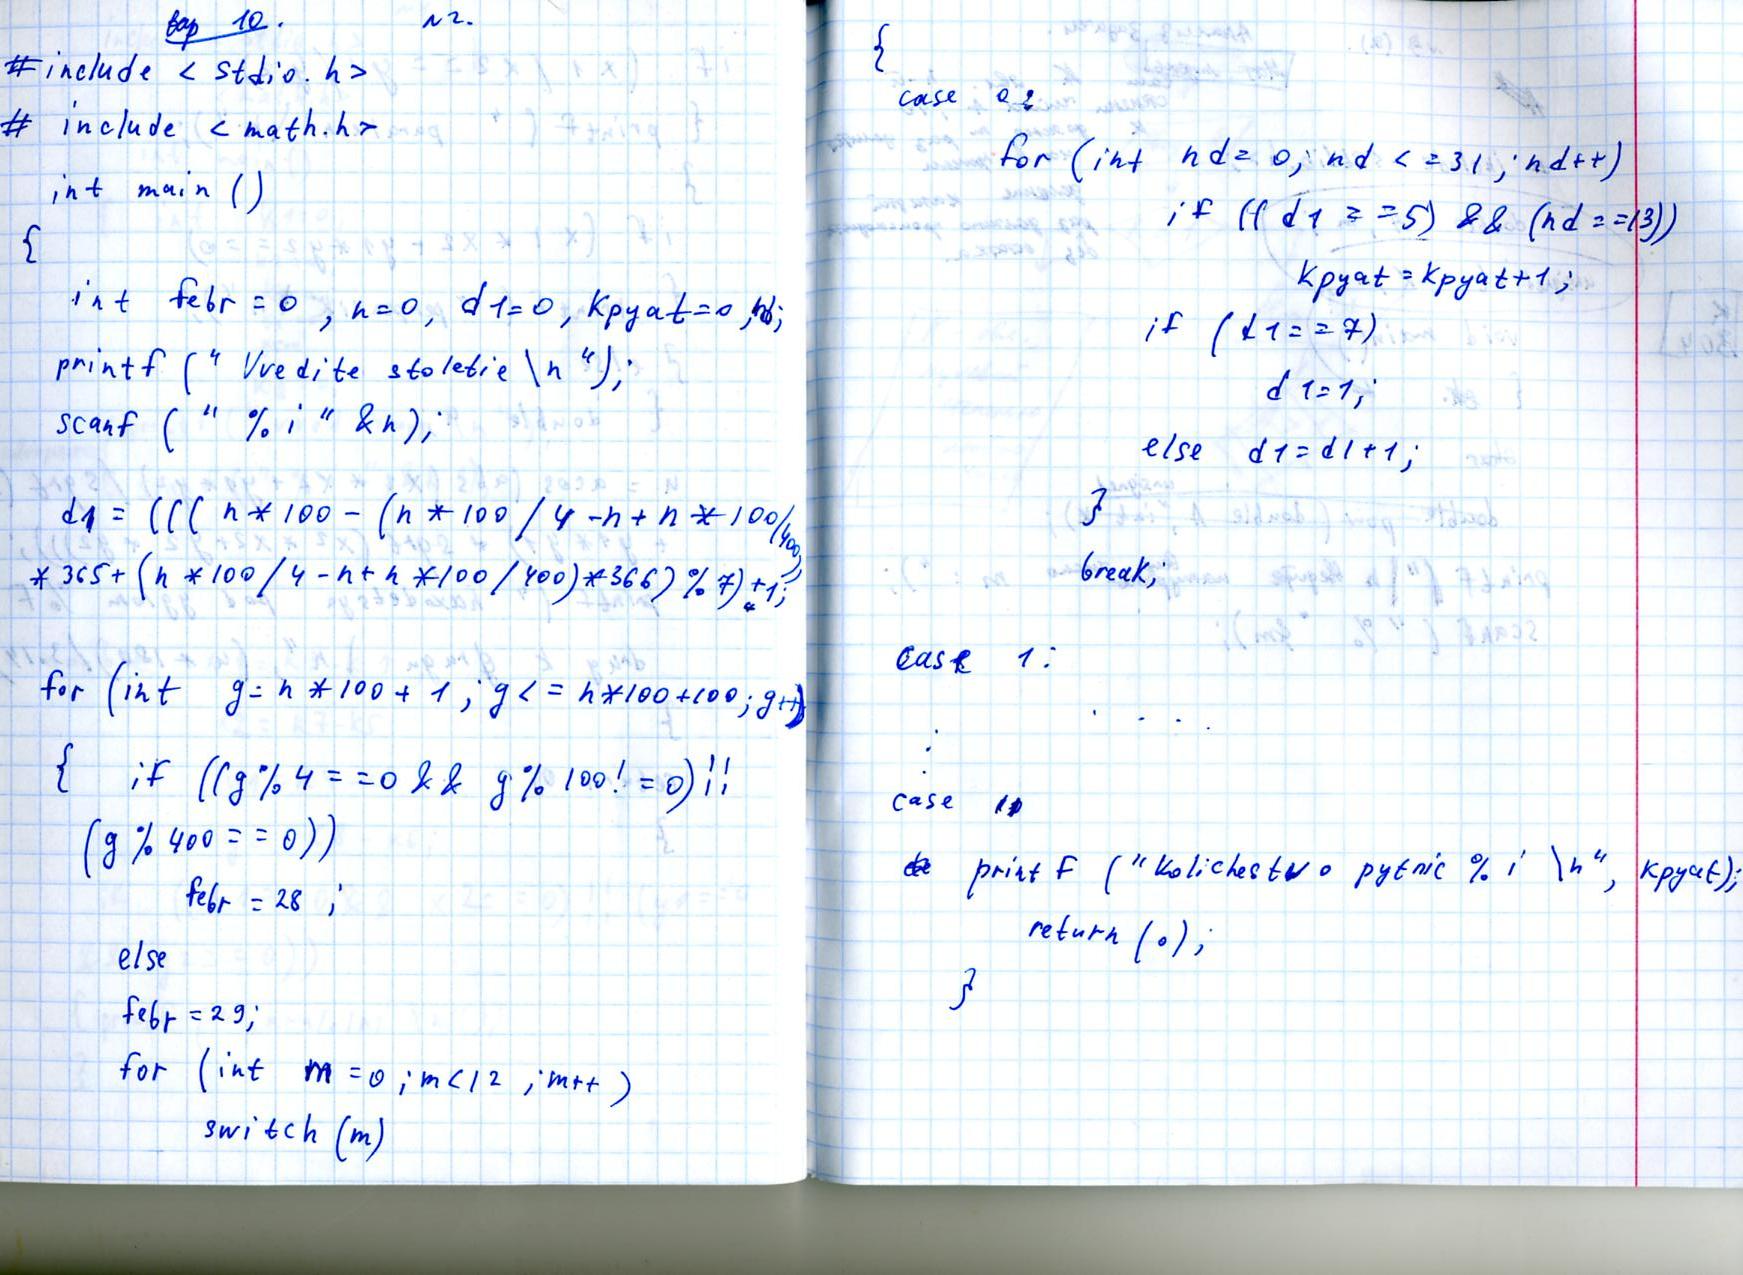 вар 10. N2.
#include < stdio.h>
# include < math.h>
int main ()
{
int febr = 0 , n=0, d1=0, kpyat=0 ;
printf (" Vvedite stoletie \n ");
scanf ( " % i " &n);
d1 = ((( n*100 - (n*100 / 4 -n+n*100/400)
*365+ (n*100/4-n+n*100/400)*366) % 7)+1;
for (int g=n*100+1; g<=n*100+100; g++)
{ if ((g%4==0 && g%100!=0)||
(g%400==0))
febr = 28 ;
else
febr = 29;
for (int m=0; m<12 ; m++ )
switch (m)
{
case 0:
for (int nd=0; nd<=31; nd++)
if ((d1==5) && (nd==13))
kpyat=kpyat+1;
if (d1==7)
d1=1;
else d1=d1+1;
}
break;
case 1:
. . . .
:
.
case 11
printf ("Kolichestvo pytnic % i \n", kpyat);
return (0);
}